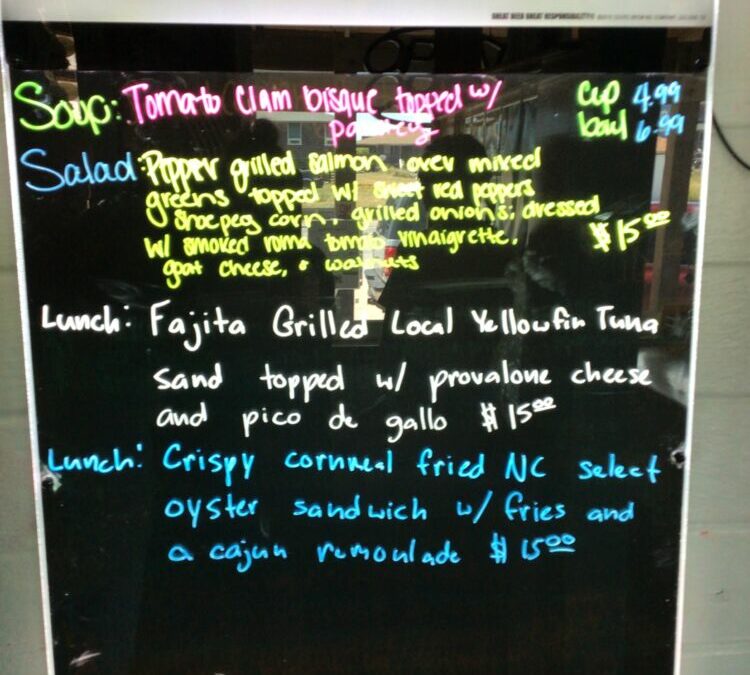 GREAT BEER GREAT RESPONSIBILITY®
Soup: Tomato Clam bisque topped w/ cup 4.99
parsley bowl 6.99
Salad: Pepper grilled salmon over mixed
greens topped w/ sweet red peppers
shoepeg corn, grilled onions; dressed
w/ smoked roma tomato vinaigrette, $15.00
goat cheese, & walnuts
Lunch: Fajita Grilled Local Yellowfin Tuna
sand topped w/ provalone cheese
and pico de gallo $15.00
Lunch: Crispy cornmeal fried NC select
oyster sandwich w/ fries and
a cajun remoulade $15.00